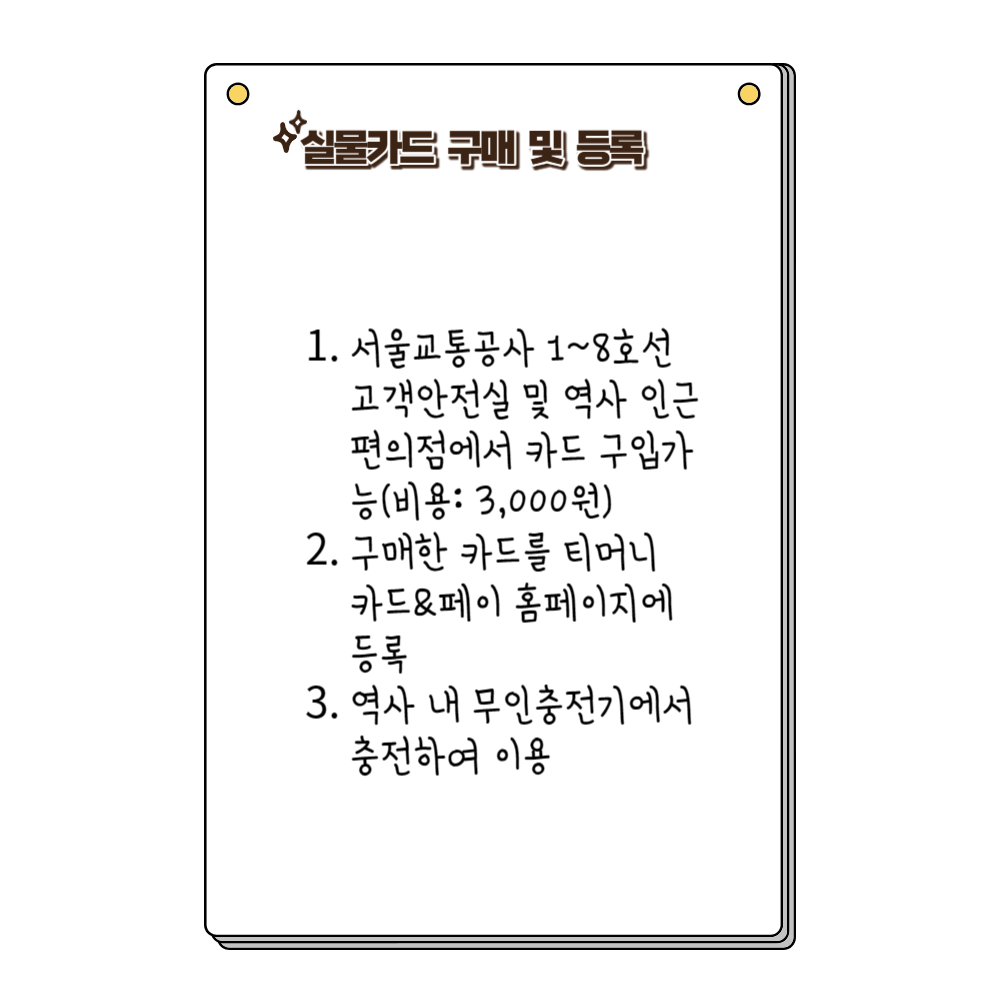 실물카드 구매 및 등록
1. 서울교통공사 1~8호선
고객안전실 및 역사 인근
편의점에서 카드 구입가
능(비용: 3,000원)
2. 구매한 카드를 티머니
카드&페이 홈페이지에
등록
3. 역사 내 무인충전기에서
충전하여 이용